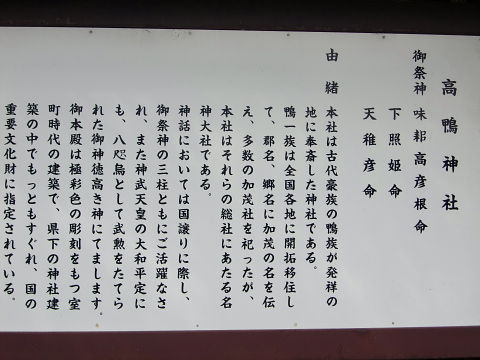 高鴨神社
御祭神 味耜高彦根命
下照姫命
天稚彦命
由緒 本社は古代豪族の鴨族が発祥の
地に奉斎した神社である。
鴨一族は全国各地に開拓移住し
て、郡名、郷名に加茂の名を伝
え、多数の加茂社を祀ったが、
本社はそれらの総社にあたる名
神大社である。
神話においては国譲りに際し、
御祭神の三柱ともにご活躍なさ
れ、また神武天皇の大和平定に
も、八咫烏として武勲をたてら
れた御神徳高き神にてまします。
御本殿は極彩色の彫刻をもつ室
町時代の建築で、県下の神社建
築の中でもっともすぐれ、国の
重要文化財に指定されている。